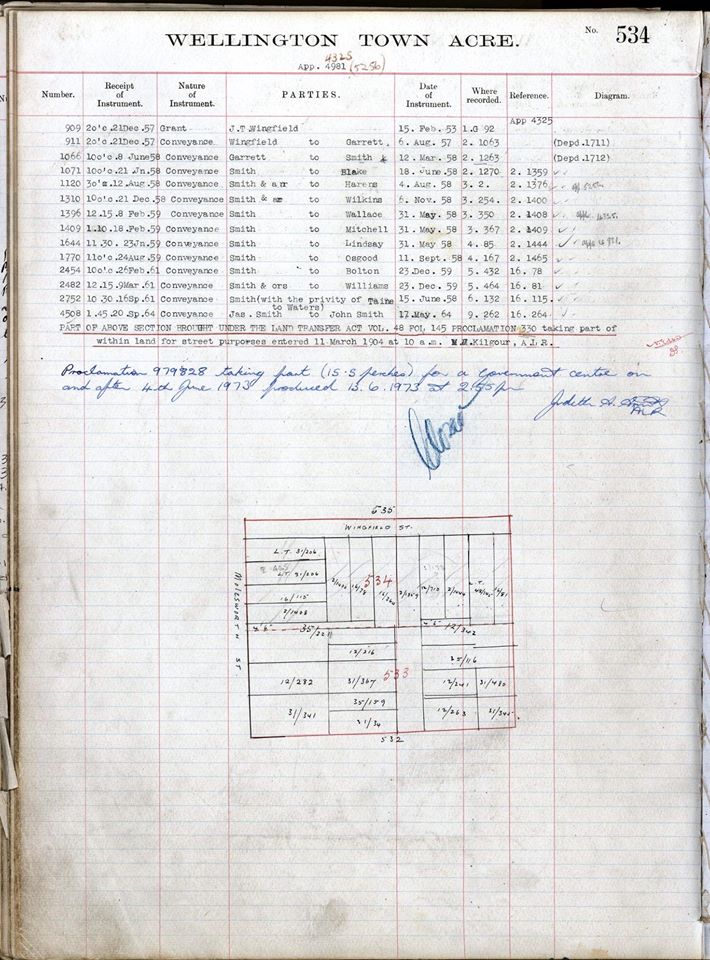 WELLINGTON TOWN ACRE.
No. 534
4325
App. 4981 (5256)
Number. Receipt of Instrument. Nature of Instrument. PARTIES. Date of Instrument. Where recorded. Reference. Diagram.
App 4325
909 2o'c.21Dec.57 Grant J.T.Wingfield 15. Feb. 53 1.G 92
911 2o'c.21Dec.57 Conveyance Wingfield to Garrett. 6. Aug. 57 2. 1063 (Depd.1711)
1066 10o'c.8 June58 Conveyance Garrett to Smith 12. Mar. 58 2. 1263 (Depd.1712)
1071 10o'c.21 Jn.58 Conveyance Smith to Blake 18. June.58 2. 1270 2. 1359
1120 3o's.12.Aug.58 Conveyance Smith & anr to Harens 4. Aug. 58 3. 2. 2. 1376
1310 10o'c.21 Dec.58 Conveyance Smith & ar to Wilkins 6. Nov. 58 3. 254. 2. 1400
1396 12.15.8 Feb.59 Conveyance Smith to Wallace 31. May. 58 3. 350 2. 1408
1409 1.10.18.Feb.59 Conveyance Smith to Mitchell 31. May. 58 3. 367 2. 1409
1644 11.30. 23Jn.59 Conveyance Smith to Lindsay 31. May 58 4. 85 2. 1444
1770 11o'c.24Aug.59 Conveyance Smith to Osgood 11. Sept. 58 4. 167 2. 1465
2454 10o'c.26Feb.61 Conveyance Smith to Bolton 23.Dec. 59 5. 432 16. 78
2482 12.15.9Mar.61 Conveyance Smith & ors to Williams 23.Dec. 59 5. 464 16. 81
2752 10.30.16Sp.61 Conveyance Smith(with the privity of Taine to Waters) 15. June.58 6. 132 16. 115.
4508 1.45.20 Sp.64 Conveyance Jas. Smith to John Smith 17.May. 64 9. 262 16. 264
PART OF ABOVE SECTION BROUGHT UNDER THE LAND TRANSFER ACT VOL. 48 FOL 145 PROCLAMATION 330 taking part of
within land for street purposes entered 11 March 1904 at 10 a.m. Kilgour, A.L.R.
Proclamation 979828 taking part (15.5 perches) for a Government centre on
and after 4th June 1973 produced 13.6.1973 at 2.55pm
Judith A.
ALR
635
WINGFIELD ST.
L.T. 31/206
L.T. 31/206
16/115
2/1408
534
MOLESWORTH ST.
35/221
12/342
12/216
35/116
12/282
31/367
533
12/241
31/480
31/341
35/159
31/34
12/263
532